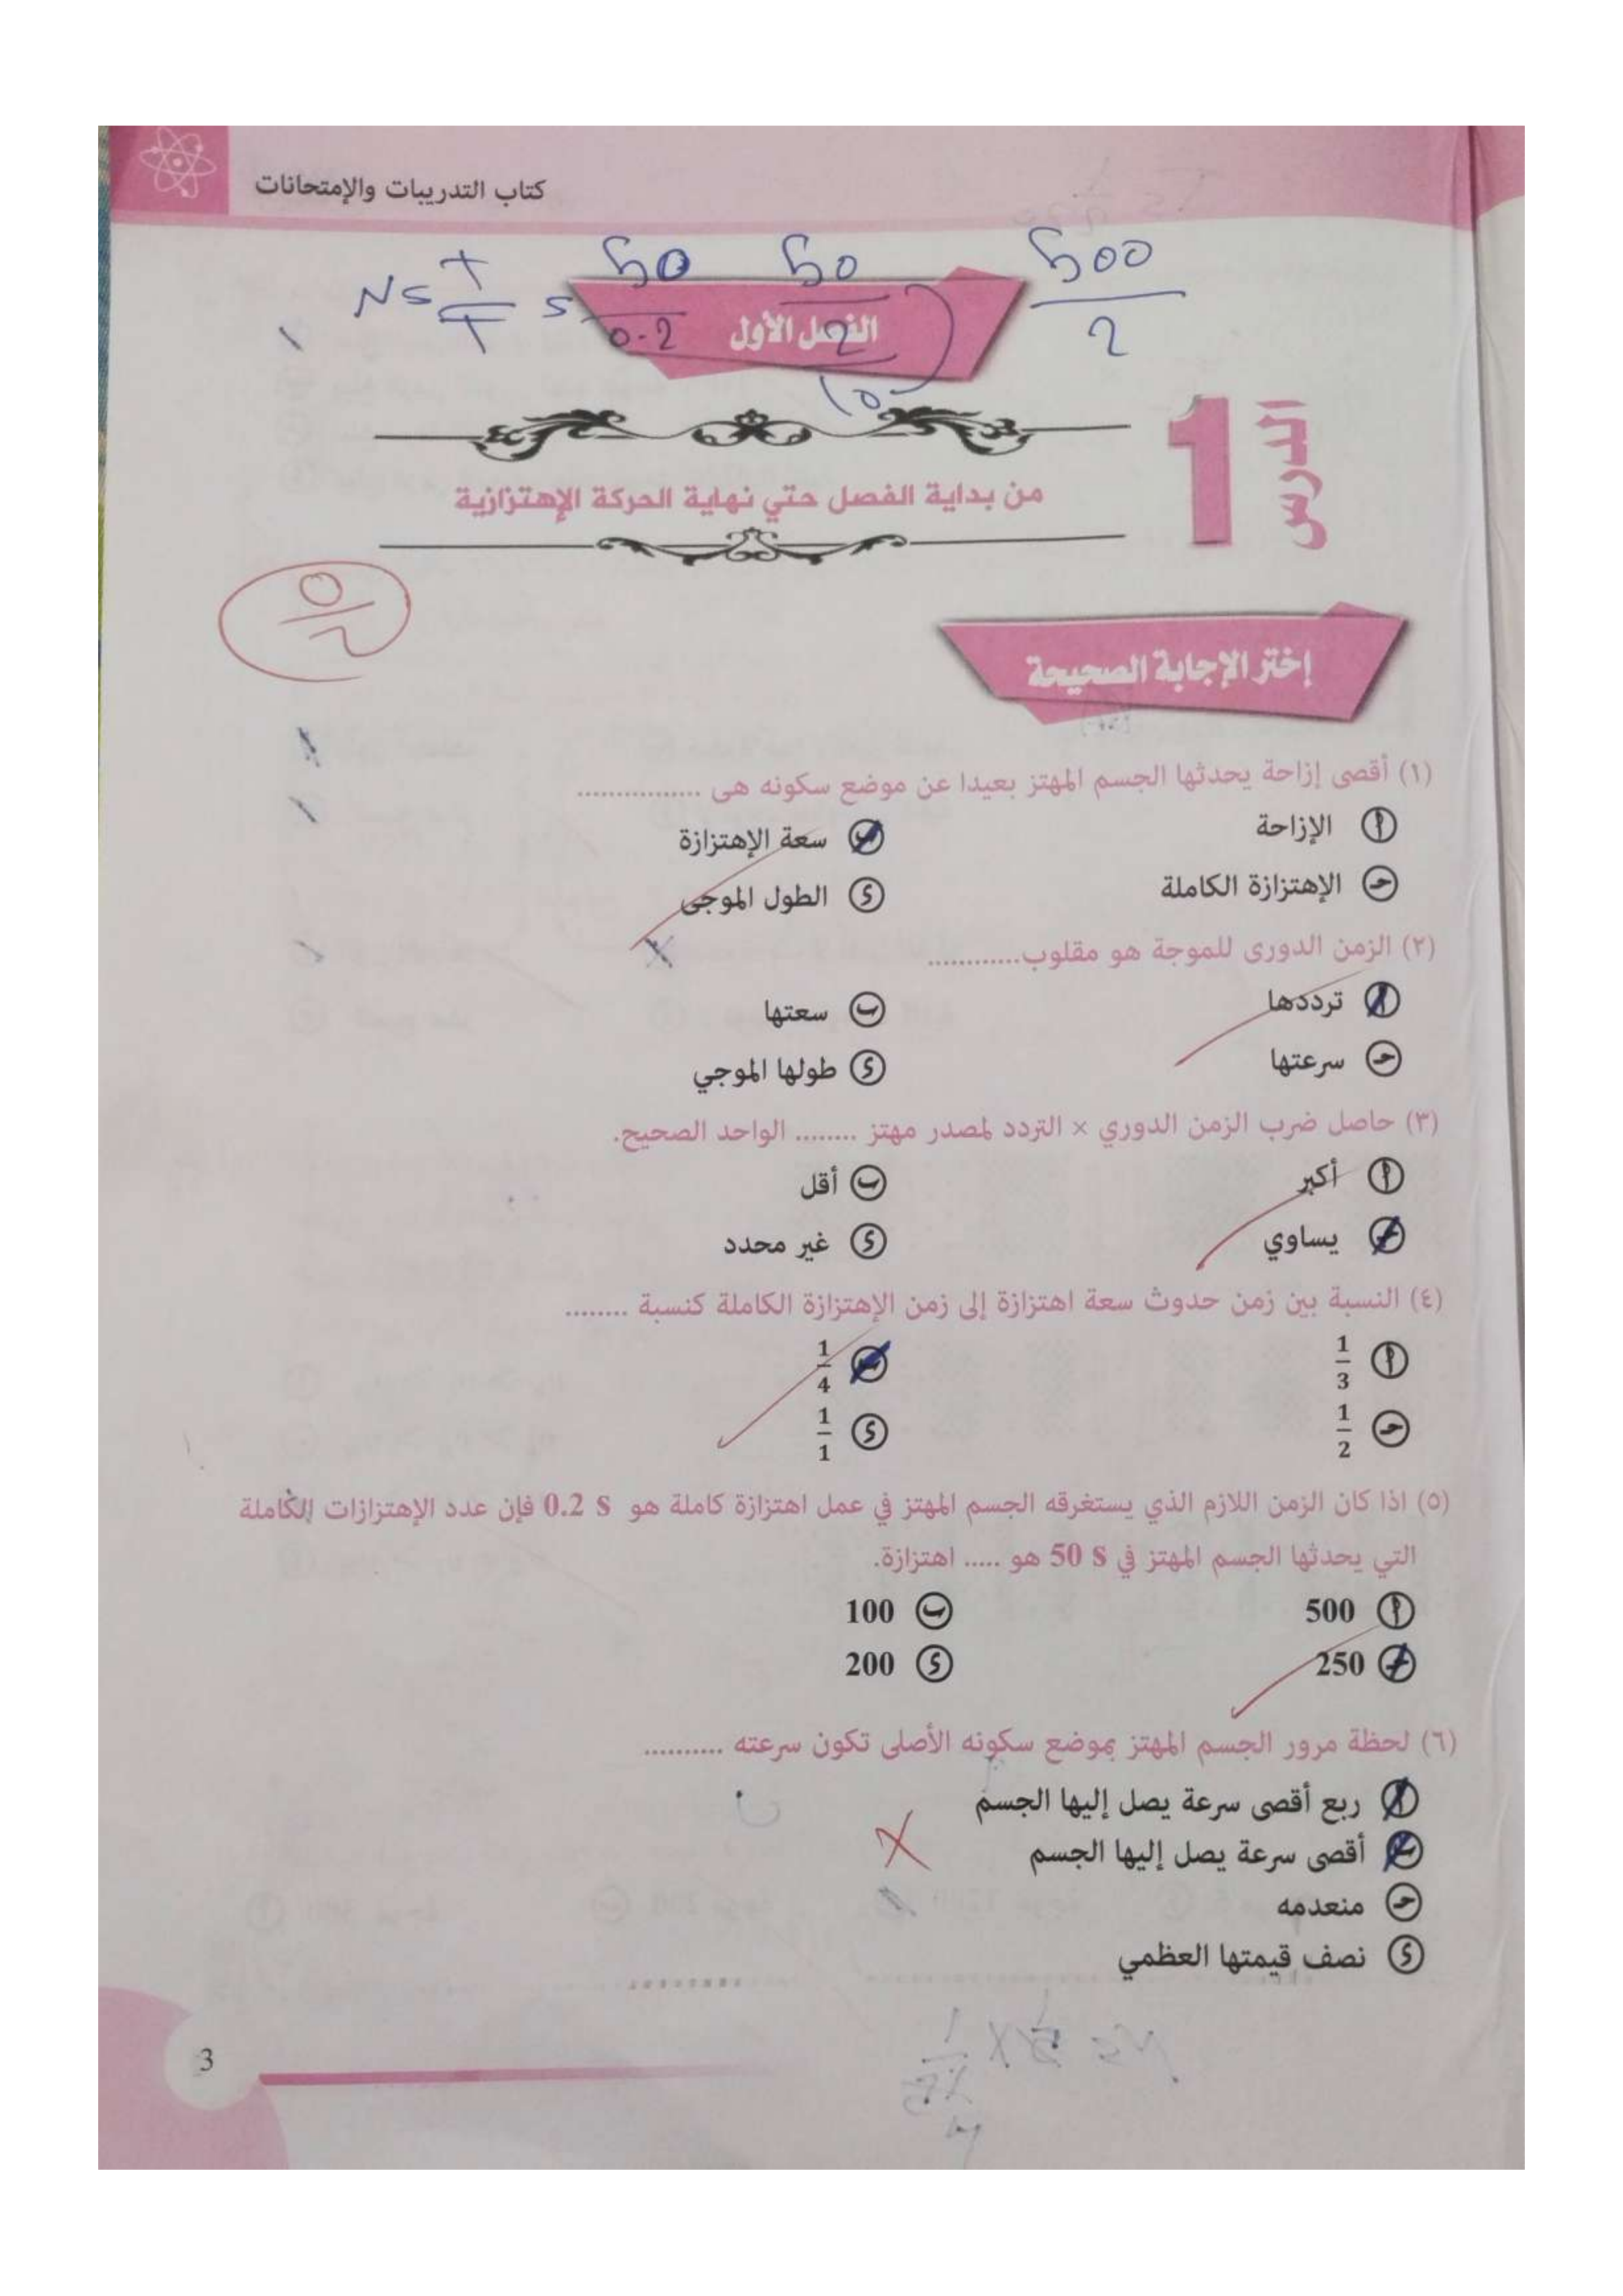 كتاب التدريبات والإمتحانات
N = t/T = 50/0.2 50/(2/10) 500/2
الفصل الأول
الدرس 1
من بداية الفصل حتي نهاية الحركة الإهتزازية
إختر الإجابة الصحيحة
(١) أقصى إزاحة يحدثها الجسم المهتز بعيدا عن موضع سكونه هى ................
أ الإزاحة
ب سعة الإهتزازة
جـ الإهتزازة الكاملة
د الطول الموجى
(٢) الزمن الدورى للموجة هو مقلوب............
أ ترددها
ب سعتها
جـ سرعتها
د طولها الموجي
(٣) حاصل ضرب الزمن الدوري × التردد لمصدر مهتز ........ الواحد الصحيح.
أ أكبر
ب أقل
جـ يساوي
د غير محدد
(٤) النسبة بين زمن حدوث سعة اهتزازة إلى زمن الإهتزازة الكاملة كنسبة ........
أ 1/3
ب 1/4
جـ 1/2
د 1/1
(٥) اذا كان الزمن اللازم الذي يستغرقه الجسم المهتز في عمل اهتزازة كاملة هو 0.2 s فإن عدد الإهتزازات الكاملة
التي يحدثها الجسم المهتز في 50 s هو ..... اهتزازة.
أ 500
ب 100
جـ 250
د 200
(٦) لحظة مرور الجسم المهتز بموضع سكونه الأصلى تكون سرعته ..........
أ ربع أقصى سرعة يصل إليها الجسم
ب أقصى سرعة يصل إليها الجسم
جـ منعدمه
د نصف قيمتها العظمي
3